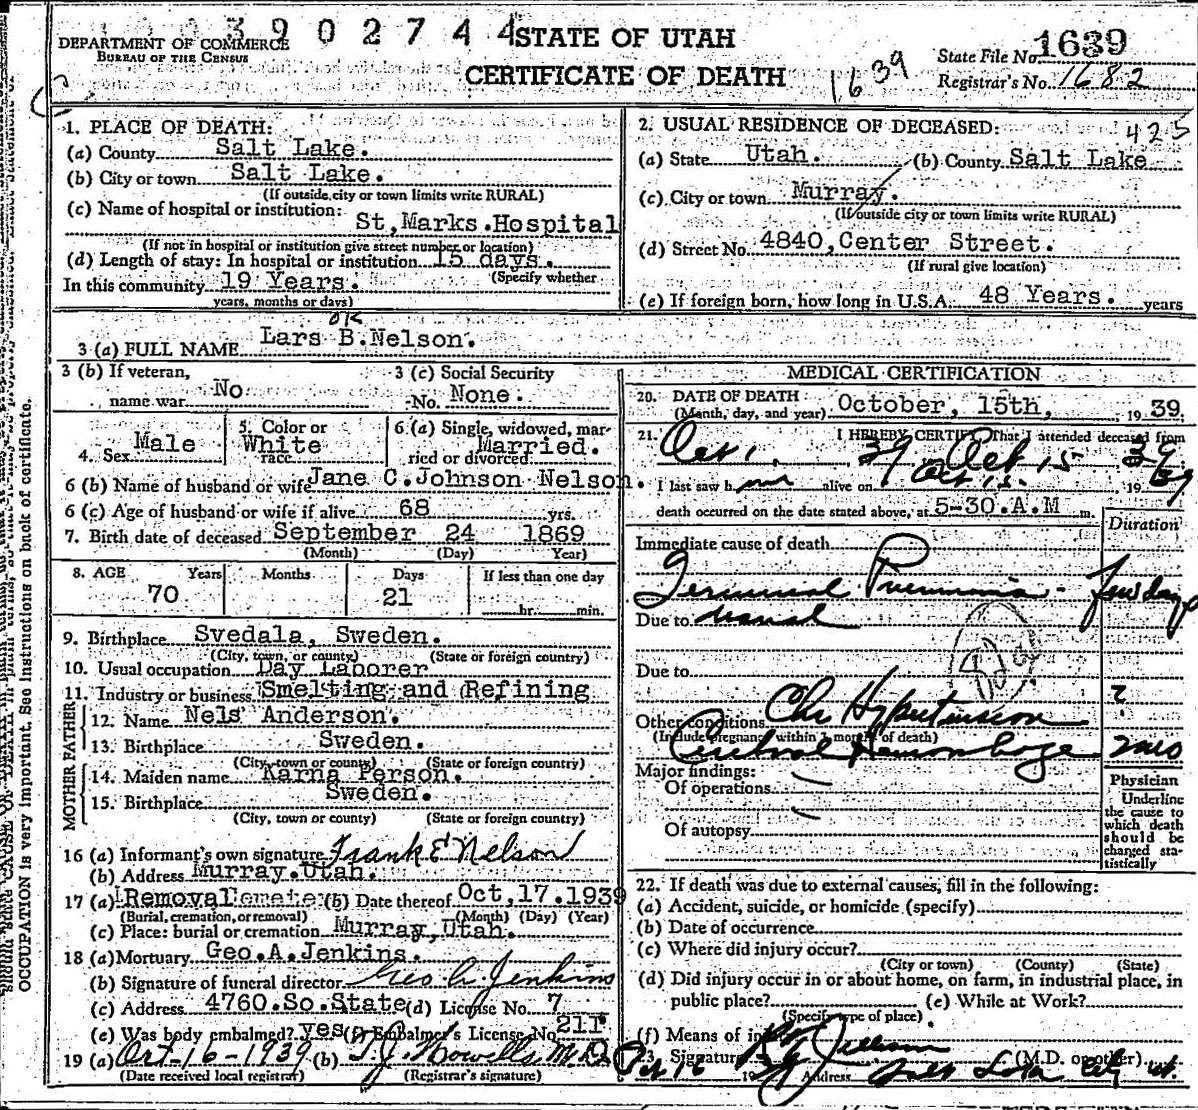 0390274 4 STATE OF UTAH
DEPARTMENT OF COMMERCE
BUREAU OF THE CENSUS
CERTIFICATE OF DEATH
1639
State File No. 1639
Registrar's No. 1682
1. PLACE OF DEATH:
(a) County Salt Lake.
(b) City or town Salt Lake.
(If outside city or town limits write RURAL)
(c) Name of hospital or institution:
St, Marks.Hospital
(If not in hospital or institution give street number or location)
(d) Length of stay: In hospital or institution 15 days.
(Specify whether
In this community 19 Years.
years, months or days)
2. USUAL RESIDENCE OF DECEASED: 425
(a) State Utah. (b) County Salt Lake
(c) City or town Murray.
(If outside city or town limits write RURAL)
(d) Street No. 4840, Center Street.
(If rural give location)
(e) If foreign born, how long in U.S.A. 48 Years. years
OK
3 (a) FULL NAME Lars B.Nelson.
3 (b) If veteran,
name war. No
3 (c) Social Security
No. None.
4. Sex Male
5. Color or
race White
6. (a) Single, widowed, mar-
ried or divorced Married.
6 (b) Name of husband or wife Jane C.Johnson Nelson.
6 (c) Age of husband or wife if alive 68 yrs.
7. Birth date of deceased September 24 1869
(Month) (Day) Year)
8. AGE Years Months Days If less than one day
70 21 hr. min.
9. Birthplace Svedala, Sweden.
(City, town, or county) (State or foreign country)
10. Usual occupation Day Laborer
11. Industry or business Smelting and Refining
FATHER
12. Name Nels Anderson.
13. Birthplace Sweden.
(City, town or county) (State or foreign country)
MOTHER
14. Maiden name Karna Person.
15. Birthplace Sweden.
(City, town or county) (State or foreign country)
16 (a) Informant's own signature Frank E Nelson
(b) Address Murray.Utah.
17 (a) Removal (b) Date thereof Oct, 17.1939
(Burial, cremation, or removal) (Month) (Day) (Year)
(c) Place: burial or cremation Murray, Utah.
18 (a) Mortuary Geo.A.Jenkins.
(b) Signature of funeral director Geo A. Jenkins
(c) Address 4760.So.State (d) License No. 7
(e) Was body embalmed? yes (f) Embalmer's License No. 211
19 (a) Oct-16-1939 (b) T.J. Howells M.D.
(Date received local registrar) (Registrar's signature)
MEDICAL CERTIFICATION
20. DATE OF DEATH
(Month, day, and year) October, 15th, 1939.
21. I HEREBY CERTIFY That I attended deceased from
Oct 1, 39 to Oct 15 39
I last saw him alive on Oct 15. 1939
death occurred on the date stated above, at 5-30.A.M m.
Duration
Immediate cause of death
Terminal Pneumonia - few days
Due to
Due to
Other conditions Chr Hypertension ?
(Include pregnancy within 3 months of death)
Cerebral Hemorrhage 2 mo
Major findings:
Of operations
Of autopsy
Physician
Underline
the cause to
which death
should be
charged sta-
tistically
22. If death was due to external causes, fill in the following:
(a) Accident, suicide, or homicide (specify)
(b) Date of occurrence
(c) Where did injury occur?
(City or town) (County) (State)
(d) Did injury occur in or about home, on farm, in industrial place, in
public place? (e) While at Work?
(Specify type of place)
(f) Means of
23. Signature (M.D. or other)
16 Address Salt Lake City Ut.
OCCUPATION is very important. See instructions on back of certificate.